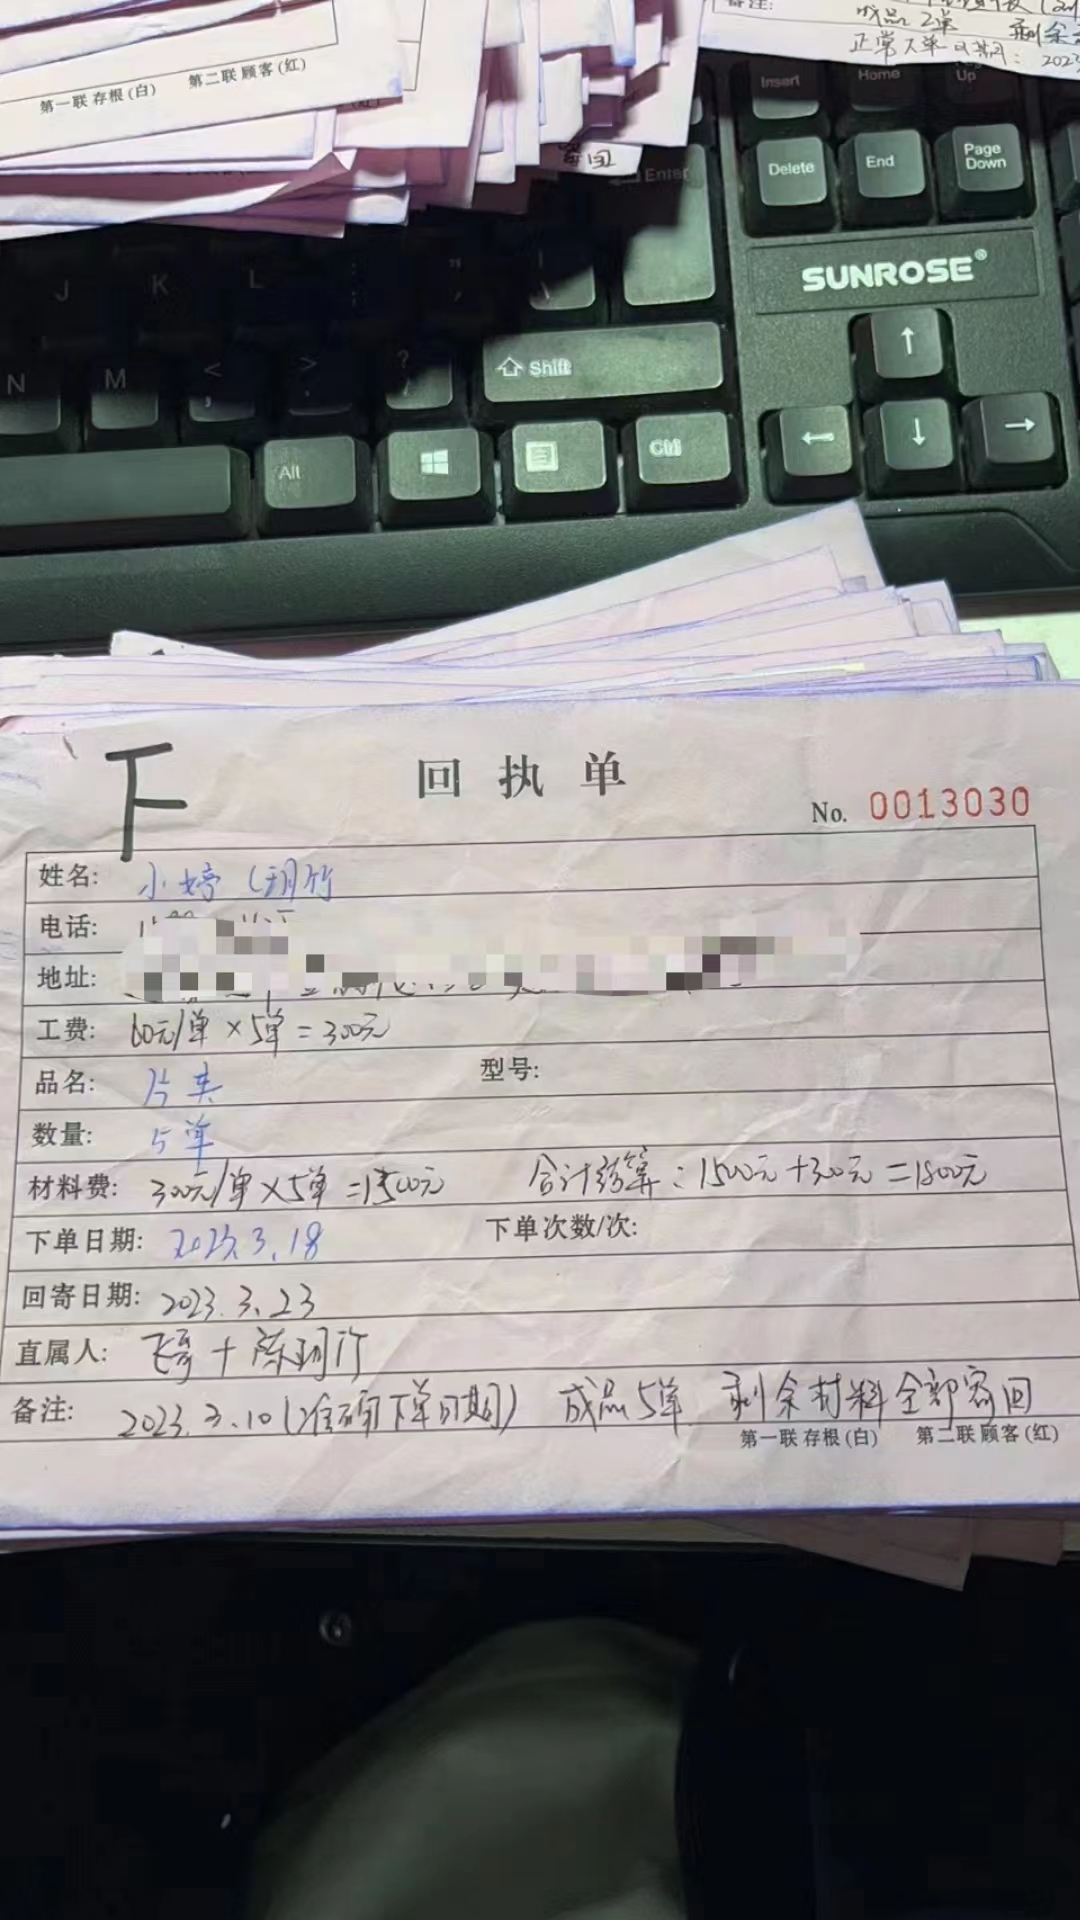 备注:
成品 2单 剩余
正常下单日期: 2023
第一联 存根(白) 第二联 顾客(红)
寄回
Insert Home Up
Delete End Page Down
Enter
SUNROSE®
J K L : ; " '
N M < , > ? Shift ↑
Alt Ctrl ← ↓ →
下
回执单
No. 0013030
姓名: 小婷(玥竹
电话:
地址:
工费: 60元/单×5单=300元
品名: 片夹 型号:
数量: 5单
材料费: 300元/单×5单=1500元 合计结算:1500元+300元=1800元
下单日期: 2023.3.18 下单次数/次:
回寄日期: 2023.3.23
直属人: 飞哥+陈玥竹
备注: 2023.3.10(准确下单日期) 成品5单 剩余材料全部寄回
第一联 存根(白) 第二联 顾客(红)